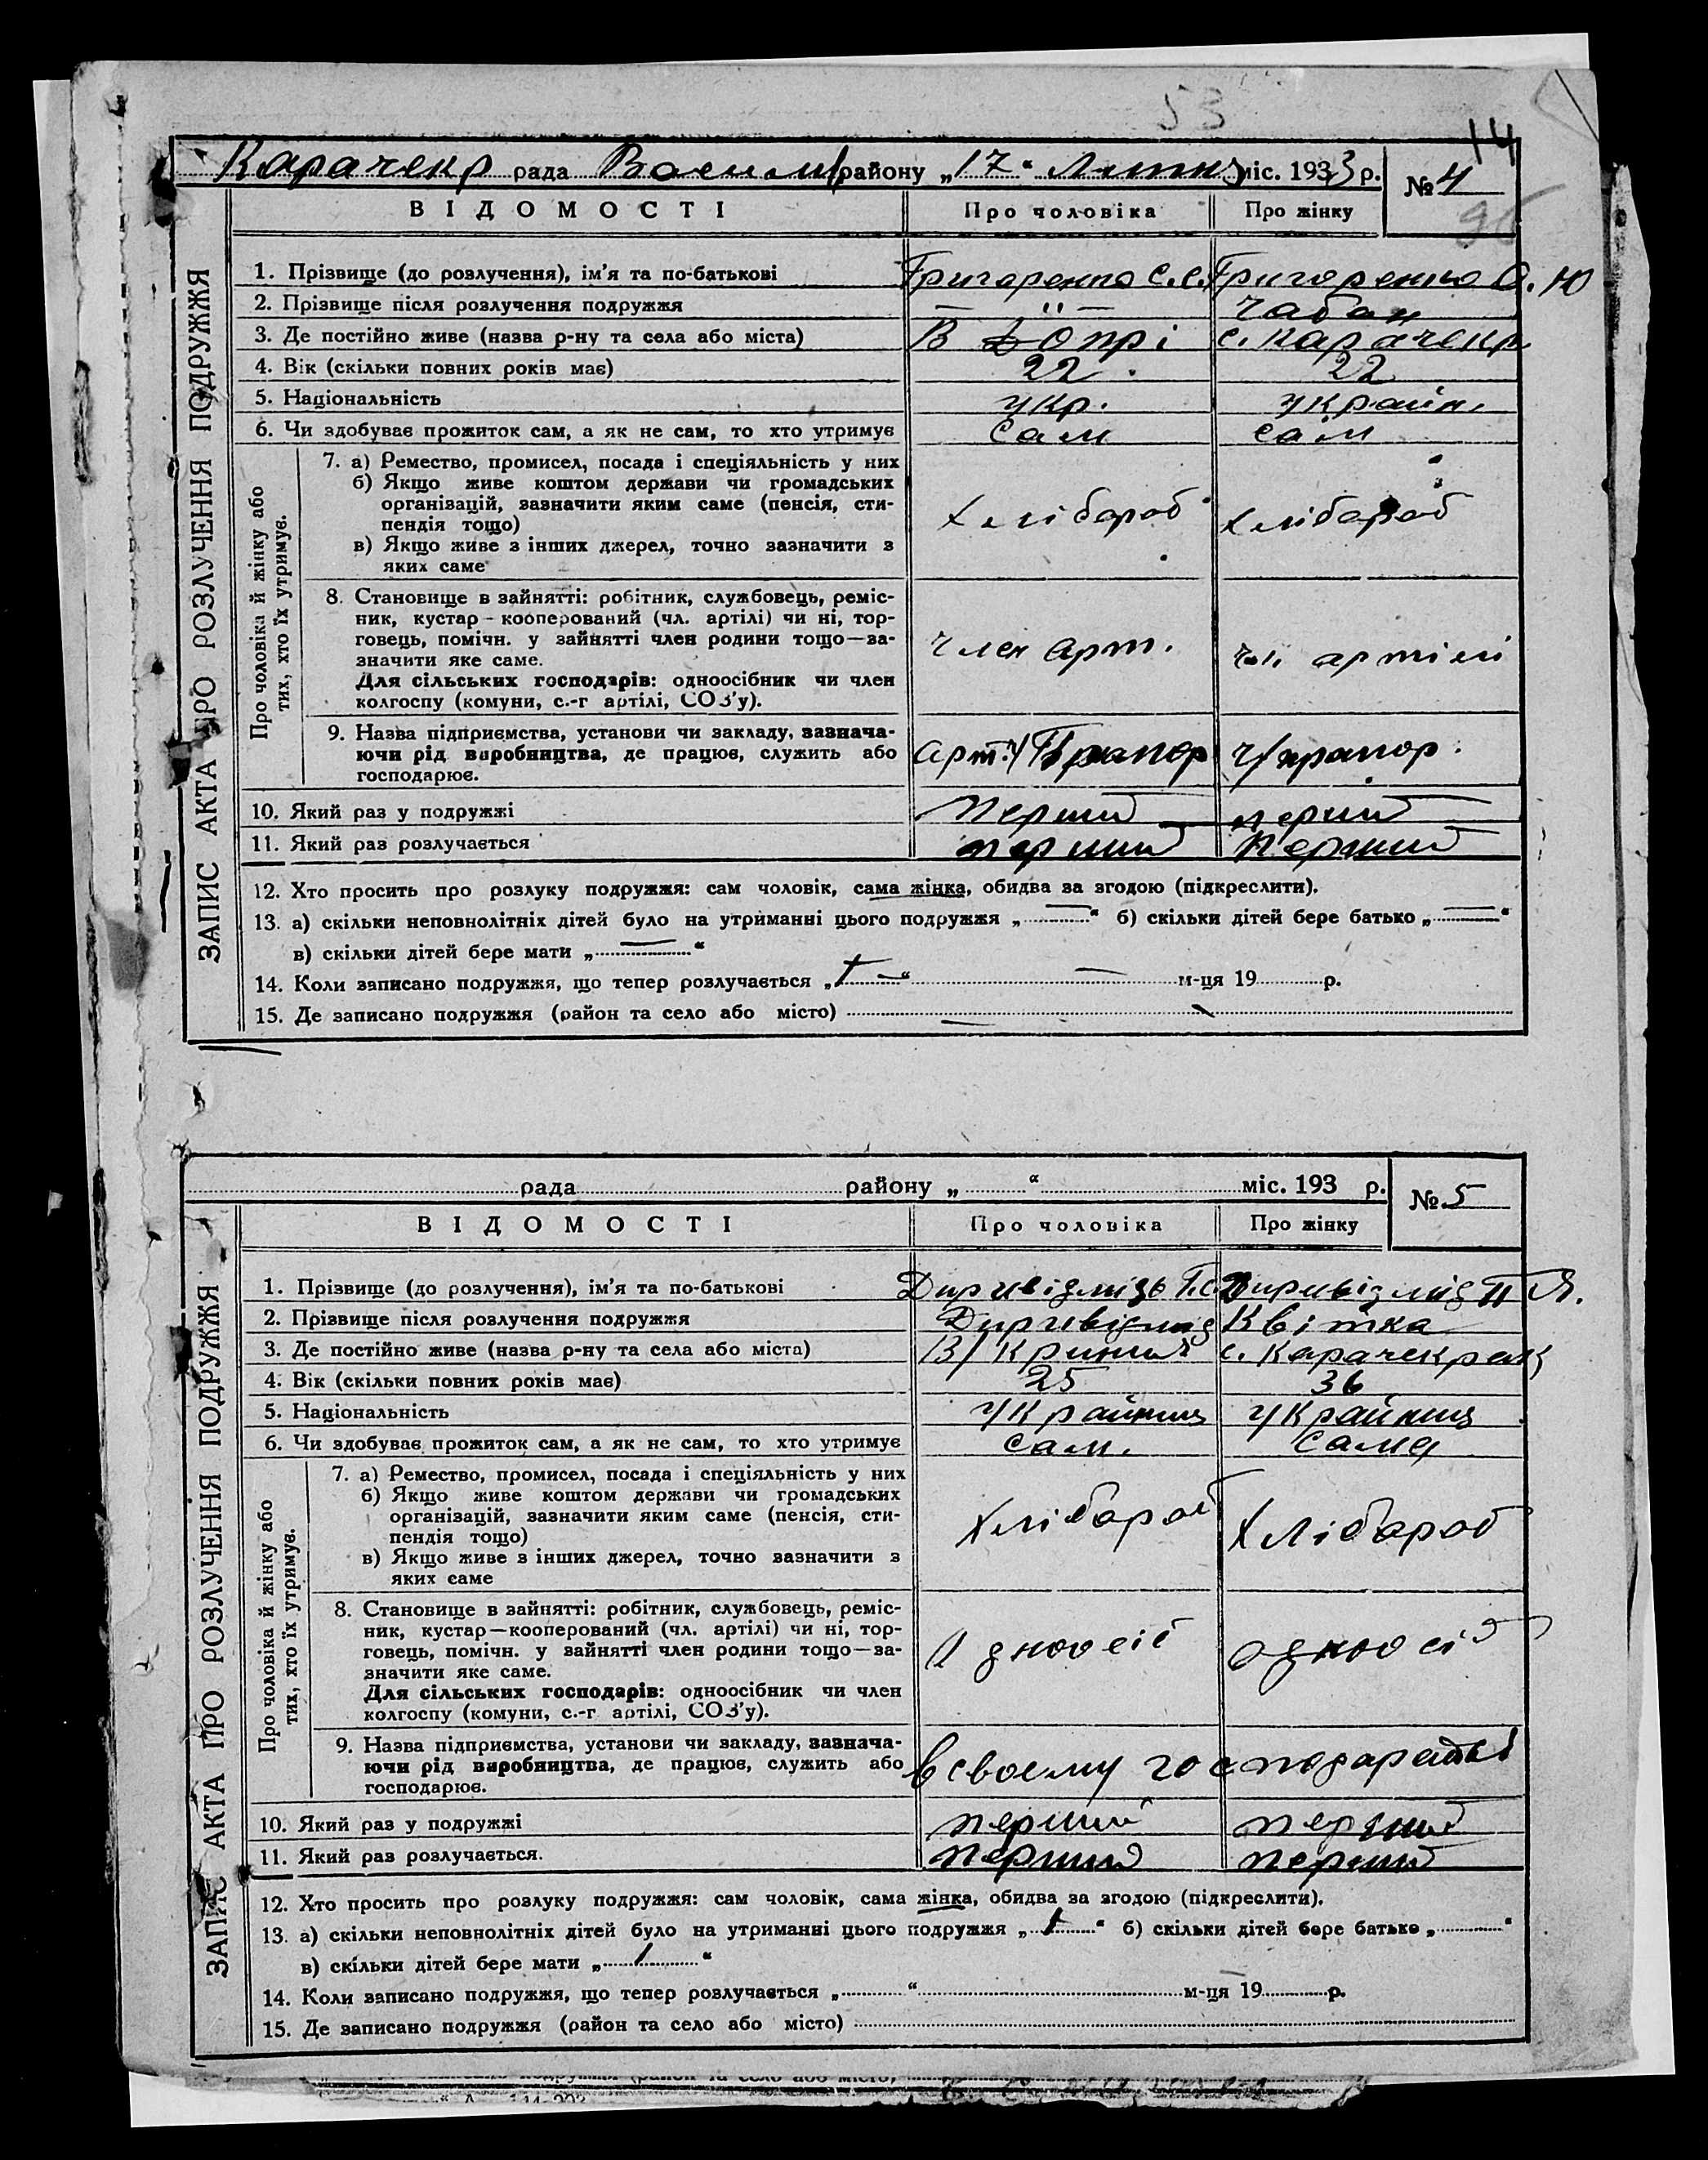 53
14
Карачекр рада Василів району „17“ Лютня міс. 1933 р. № 4
96
ВІДОМОСТІ Про чоловіка Про жінку
ЗАПИС АКТА ПРО РОЗЛУЧЕННЯ ПОДРУЖЖЯ
1. Прізвище (до розлучення), ім'я та по-батькові Григоренко С.С. Григоренко О.Ю
2. Прізвище після розлучення подружжя — " — Чабан
3. Де постійно живе (назва р-ну та села або міста) В Допрі с. Карачекр
4. Вік (скільки повних років має) 22. 22
5. Національність укр. україн.
6. Чи здобуває прожиток сам, а як не сам, то хто утримує сам сам
Про чоловіка й жінку або
тих, хто їх утримує.
7. а) Ремество, промисел, посада і спеціяльність у них
б) Якщо живе коштом держави чи громадських
організацій, зазначити яким саме (пенсія, сти-
пендія тощо)
в) Якщо живе з інших джерел, точно зазначити з
яких саме
Хлібароб Хлібароб
8. Становище в зайнятті: робітник, службовець, реміс-
ник, кустар-кооперований (чл. артілі) чи ні, тор-
говець, помічн. у зайнятті член родини тощо—за-
значити яке саме.
Для сільських господарів: одноосібник чи член
колгоспу (комуни, с.-г артілі, СОЗ'у).
Член арт. чл. артілі
9. Назва підприємства, установи чи закладу, зазнача-
ючи рід виробництва, де працює, служить або
господарює.
арт. Ч/Прапор Ч/прапор.
10. Який раз у подружжі перший перший
11. Який раз розлучається перший перший
12. Хто просить про розлуку подружжя: сам чоловік, сама жінка, обидва за згодою (підкреслити).
13. а) скільки неповнолітніх дітей було на утриманні цього подружжя „—“ б) скільки дітей бере батько „—“
в) скільки дітей бере мати „—“
14. Коли записано подружжя, що тепер розлучається „ — “ — м-ця 19 р.
15. Де записано подружжя (район та село або місто) —
рада району „ “ міс. 193 р. № 5
ВІДОМОСТІ Про чоловіка Про жінку
ЗАПИС АКТА ПРО РОЗЛУЧЕННЯ ПОДРУЖЖЯ
1. Прізвище (до розлучення), ім'я та по-батькові
2. Прізвище після розлучення подружжя Квітка
3. Де постійно живе (назва р-ну та села або міста) с. Карачекрак
4. Вік (скільки повних років має) 25 36
5. Національність Українец українец
6. Чи здобуває прожиток сам, а як не сам, то хто утримує сам. сама
Про чоловіка й жінку або
тих, хто їх утримує.
7. а) Ремество, промисел, посада і спеціяльність у них
б) Якщо живе коштом держави чи громадських
організацій, зазначити яким саме (пенсія, сти-
пендія тощо)
в) Якщо живе з інших джерел, точно зазначити з
яких саме
Хлібароб Хлібароб
8. Становище в зайнятті: робітник, службовець, реміс-
ник, кустар—кооперований (чл. артілі) чи ні, тор-
говець, помічн. у зайнятті член родини тощо—за-
значити яке саме.
Для сільських господарів: одноосібник чи член
колгоспу (комуни, с.-г артілі, СОЗ'у).
Одноосіб одноосіб
9. Назва підприємства, установи чи закладу, зазнача-
ючи рід виробництва, де працює, служить або
господарює.
в своему господарстві
10. Який раз у подружжі перший перший
11. Який раз розлучається. перший перший
12. Хто просить про розлуку подружжя: сам чоловік, сама жінка, обидва за згодою (підкреслити).
13. а) скільки неповнолітніх дітей було на утриманні цього подружжя „1“ б) скільки дітей бере батько „ “
в) скільки дітей бере мати „1“
14. Коли записано подружжя, що тепер розлучається „ “ м-ця 19 р.
15. Де записано подружжя (район та село або місто)